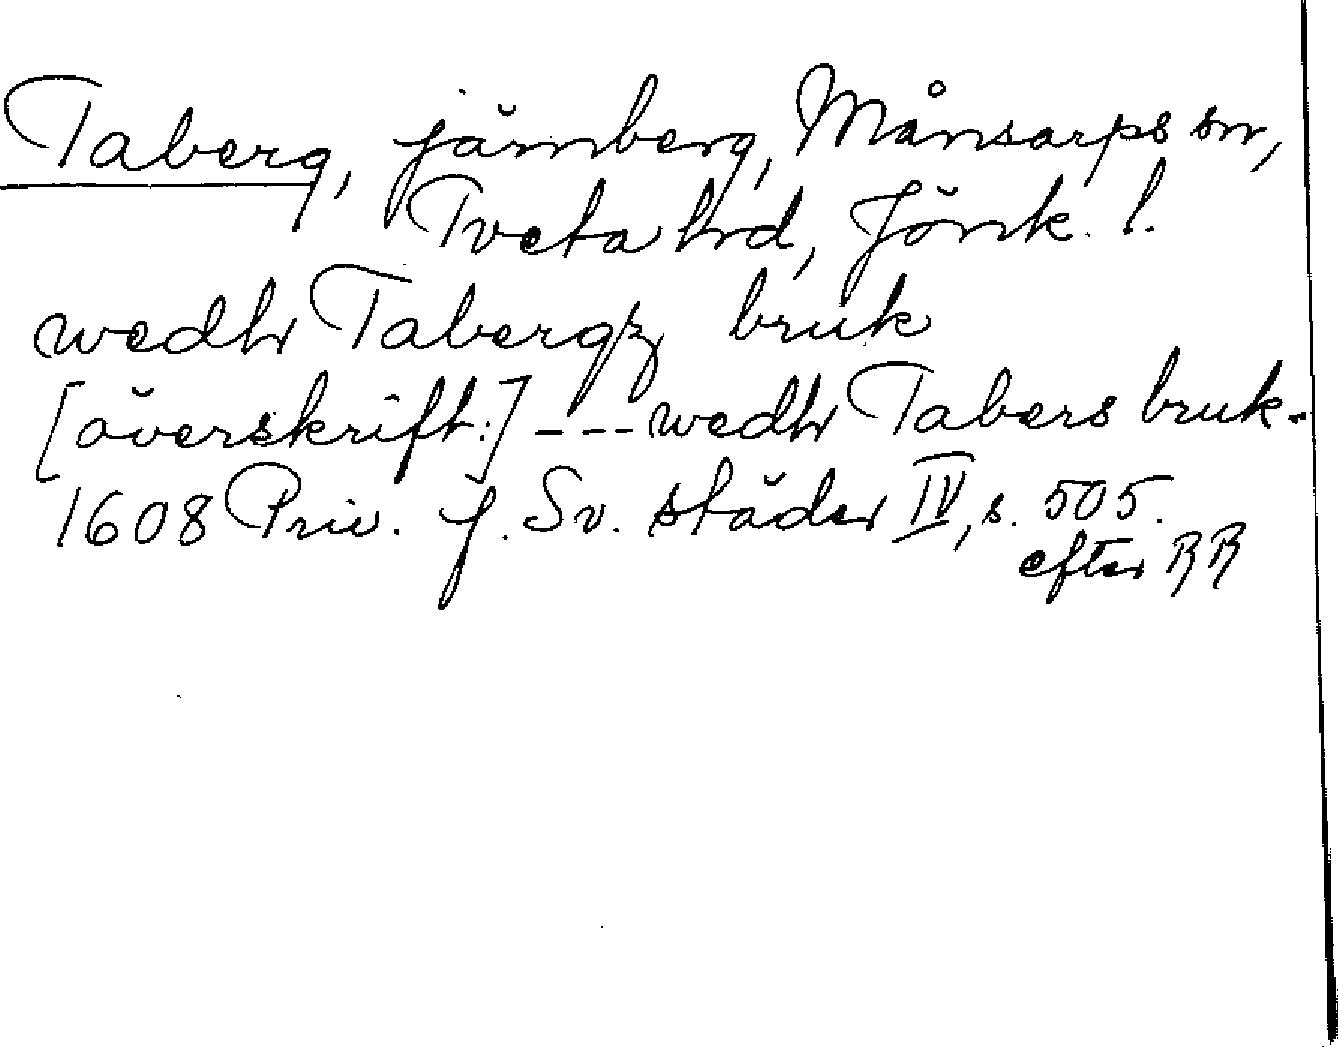 Taberg, järnberg, Månsarps sn,
Tveta hrd, Jönk. l.
wedh Tabergz bruk
[överskrift:] --- wedh Tabers bruk.
1608 Priv. f. Sv. städer IV, s. 505.
efter RR